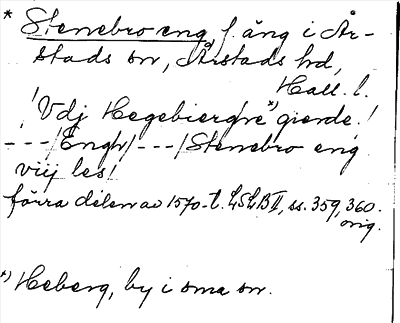 * Stenebro eng, f. äng i År-
stads sn, Årstads hd,
Hall. l.
! Vdj Hegebierghe*) gierde!
---/Engh/---/Stenebro eng
viij les!
förra delen av 1570-t. LSLB II, ss. 359, 360.
orig.
*) Heberg, by i sma sn.